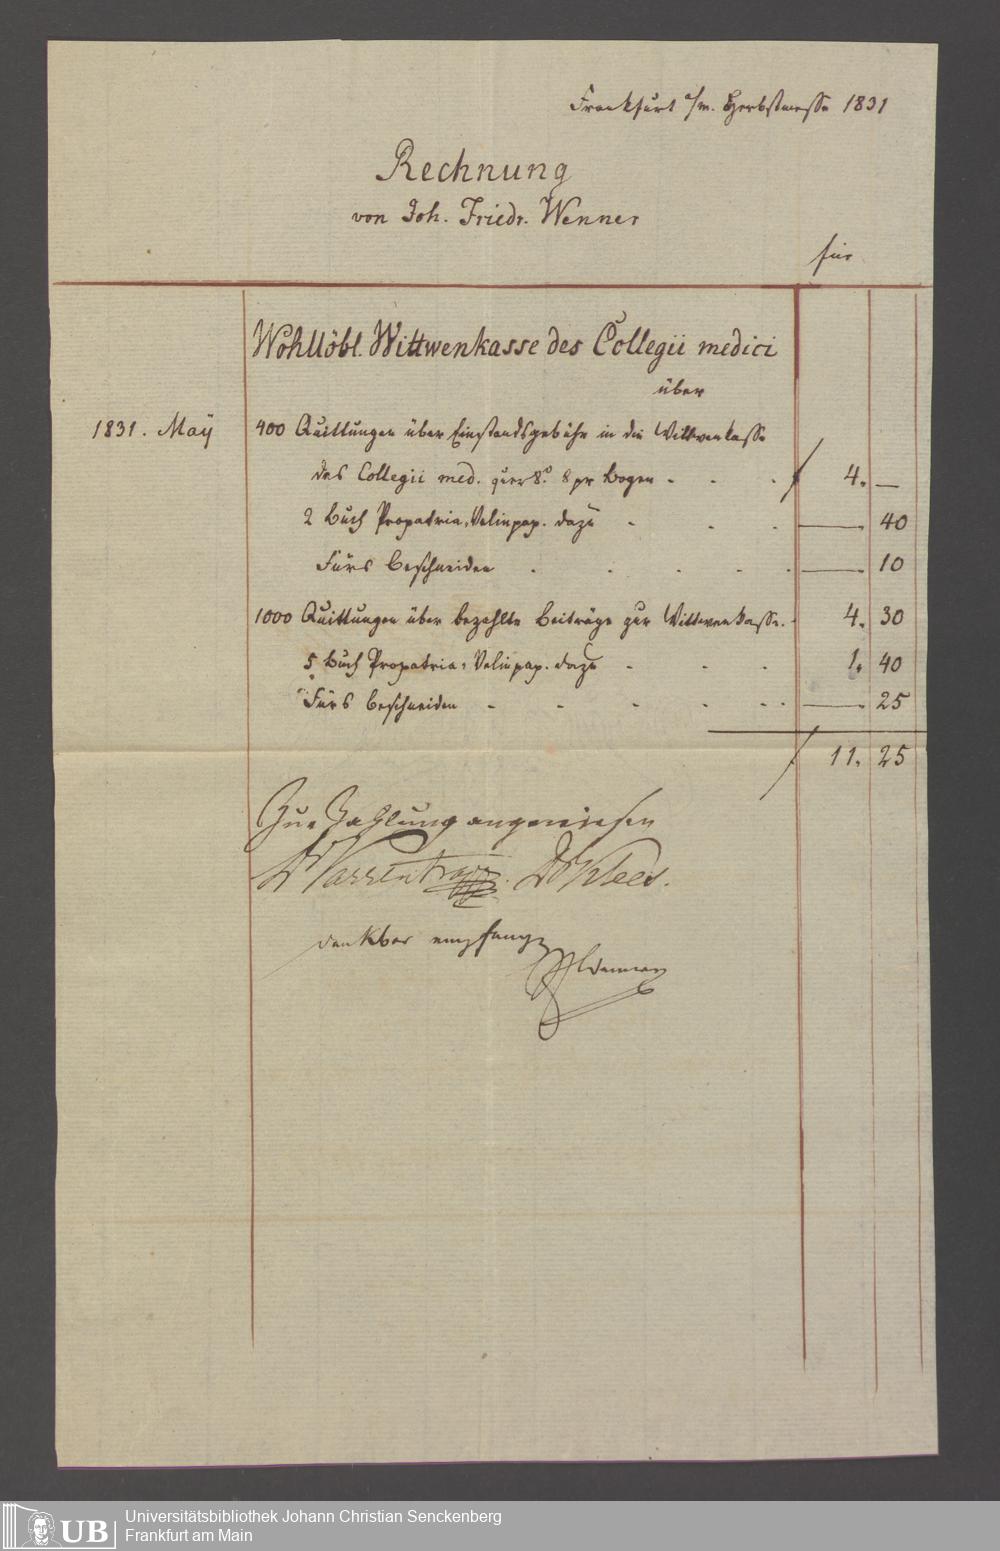 Frankfurt a/m. Herbstmesse 1831
Rechnung
von Joh. Friedr. Wenner
für
Wohllöbl. Wittwenkasse des Collegii medici
über
1831. Maÿ 400 Quittungen über Einstandsgebühr in die Wittwenkasse
des Collegii med. quer 8.º 8 pr Bogen - - - f 4. —
2 Buch Propatria, Velinpap. dazu - - - — 40
Fürs Beschneiden - - - - - — 10
1000 Quittungen über bezahlte Beiträge zur Wittwenkasse. 4. 30
5 Buch Propatria, Velinpap. dazu - - - 1. 40
Fürs Beschneiden - - - - - - — 25
f 11. 25
Zur Zahlung angewiesen
Dr Varrentrapp. Dr Kloss.
dankbar empfangen
JFWenner
Universitätsbibliothek Johann Christian Senckenberg
Frankfurt am Main
UB